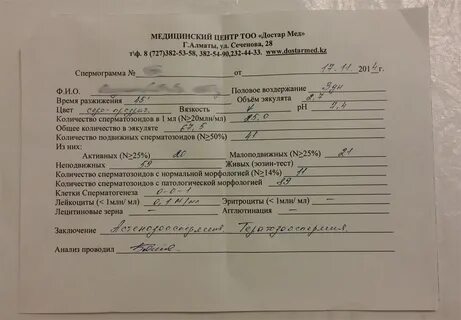 МЕДИЦИНСКИЙ ЦЕНТР ТОО «Достар Мед»
Г.Алматы, ул. Сеченова, 28
т\ф. 8 (727)382-53-58, 382-54-90,232-44-33. www.dostarmed.kz
Спермограмма № от 17.11. 2014 г.
Ф.И.О. Половое воздержание 3дн
Время разжижения 45' Объём эякулята 2,7
Цвет серо- Вязкость рН 7,4
Количество сперматозоидов в 1 мл(N≥20млн/мл) 25,0
Общее количество в эякуляте 67,5
Количество подвижных сперматозоидов (N≥50%) 41
Из них:
Активных (N≥25%) 20 Малоподвижных (N≥25%) 21
Неподвижных 59 Живых (эозин-тест)
Количество сперматозоидов с нормальной морфологией (N≥14%) 11
Количество сперматозоидов с патологической морфологией 89
Клетки Сперматогенеза 0-0-1
Лейкоциты (< 1млн/ мл) 0,1 млн/мл Эритроциты (< 1млн/ мл)
Лецитиновые зерна Агглютинация
Заключение Астенозооспермия Тератозооспермия
Анализ проводил